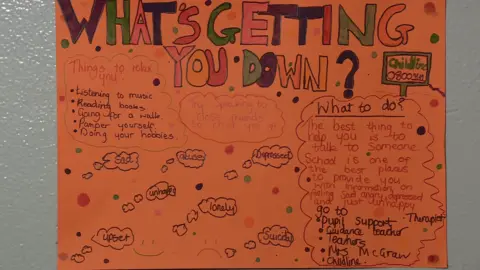 WHAT'S GETTING
YOU DOWN?
Childline
Things to relax
you
• Listening to music
• Reading books
• Going for a walk
• Pamper yourself
• Doing your hobbies
Try speaking to
Sad
Depressed
unhappy
lonely
upset
Suicidal
What to do?
The best thing to
help you is to
talk to Someone
School is one of
the best places
to provide you
with information on
feeling sad, angry, depressed
and just unhappy
go to
• Pupil Support • Therapist
• Guidance teacher
• Teachers
• Mrs McGraw
• Childline